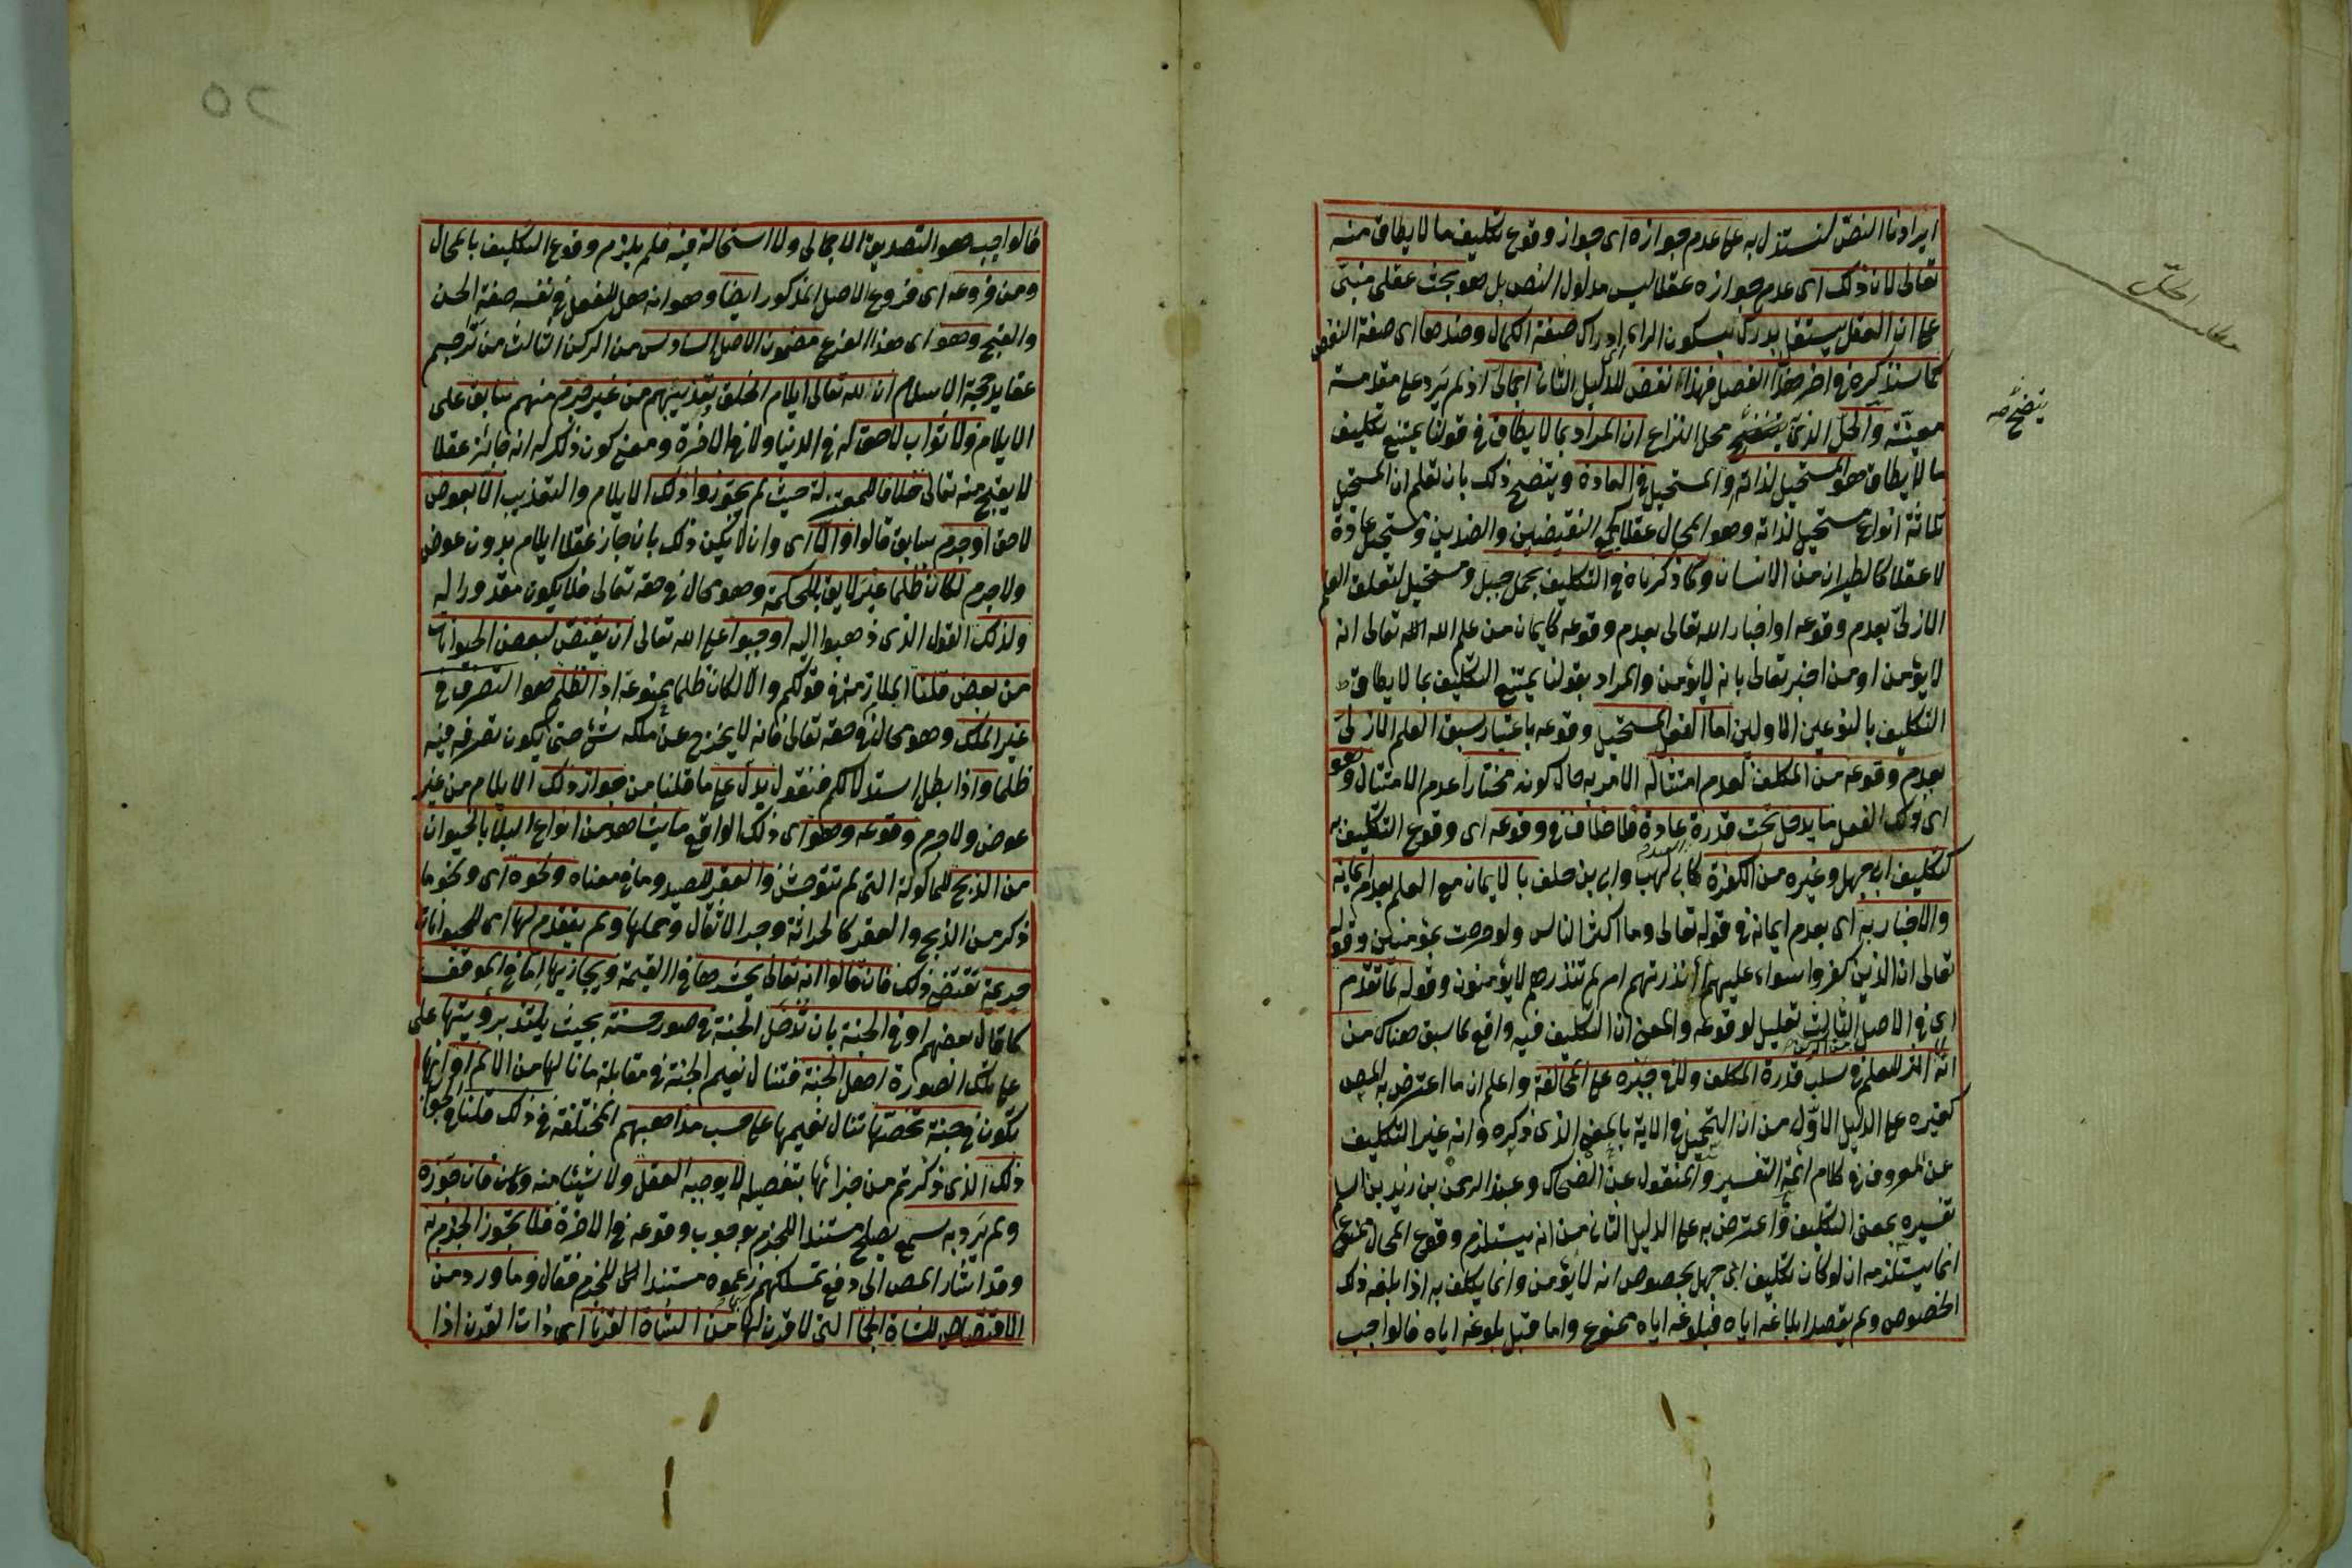 ايرادنا النص لنستدل به على عدم جوازه اى جواز وقوع تكليف ما لا يطاق منه
تعالى لان ذلك اى عدم جوازه عقلا ليس مدلول النص بل هو بحث عقلى مبنى
على ان العقل يستقل بدرك بسكون الراء اى ادراك صفة الكمال وضدها اى صفة النقص
كما سنذكره فى اخر هذا الفصل فهذا نقض للدليل الثانى اجمالى اذ لم يرد على مقدمة
معينة والحل الذى يتضح محل النزاع ان المراد بما لا يطاق فى قولنا يمتنع تكليف
ما لا يطاق هو المستحيل لذاته والمستحيل فى العادة ويتضح ذلك بان تعلم ان المستحيل
ثلاثة انواع مستحيل لذاته وهو المحال عقلا كجمع النقيضين والضدين ومستحيل عادة
لا عقلا كالطيران من الانسان وكما ذكرناه فى التكليف بحمل جبل ومستحيل لتعلق العلم
الازلى بعدم وقوعه او اخبار الله تعالى بعدم وقوعه كايمان من علم الله الله تعالى انه
لا يؤمن او من اخبر تعالى بانه لا يؤمن والمراد بقولنا يمتنع التكليف بما لا يطاق
التكليف بالنوعين الاولين اما الفعل المستحيل وقوعه باعتبار سبق العلم الازلى
بعدم وقوعه من المكلف لعدم امتثاله الامر به حال كونه مختارا عدم الامتثال وهو
اى ذلك الفعل مما يدخل تحت قدرة عادة فلا خلاف فى وقوعه اى وقوع التكليف به
كتكليف ابى جهل وغيره من الكفرة كابى لهب وابى بن خلف بالايمان مع العلم بعدم ايمانه
والاخبار به اى بعدم ايمانه فى قوله تعالى وما اكثر الناس ولو حرصت بمؤمنين وقوله
تعالى ان الذين كفروا سواء عليهم أأنذرتهم ام لم تنذرهم لا يؤمنون وقوله لما تقدم
اى فى الاصل الثالث تعليل لوقوعه والمعنى ان التكليف فيه واقع لما سبق هناك من
انه لا اثر للعلم فى سلب قدرة المكلف ولا فى جبره على المخالفة واعلم ان ما اعترض به المص
كغيره على الدليل الاول من ان التحميل فى الاية بالمعنى الذى ذكره وانه غير التكليف
عن المعروف فى كلام ائمة التفسير والمنقول عن الضحاك وعبد الرحمن بن زيد بن اسلم
تفسيره بمعنى التكليف واعترض به على الدليل الثانى من انه يستلزم وقوع المحال ممنوع
انما يستلزمه ان لو كان تكليف ابى جهل بخصوص انه لا يؤمن وانما يكلف به اذا بلغه ذلك
الخصوص ولم يقصد ابلاغه اياه فبلوغه اياه ممنوع واما قبل بلوغه اياه فالواجب
الحل
يتضح صح
٥٢
فالواجب هو التصديق الاجمالى ولا استحالة فيه فلم يلزم وقوع التكليف بالمحال
ومن فروعه اى فروع الاصل المذكور ايضا وهو انه هل للفعل فى نفسه صفة الحسن
والقبح وهو اى هذا الفرع مضمون الاصل السادس من الركن الثالث من تراجم
عقايد حجة الاسلام ان لله تعالى ايلام الخلق وتعذيبهم من غير جرم منهم سابق على
الايلام ولا ثواب لاحق له فى الدنيا ولا فى الاخرة ومعنى كون ذلك له انه جائز عقلا
لا يقبح منه تعالى خلافا للمعتزلة حيث لم يجوزوا ذلك الايلام والتعذيب الا بعوض
لاحق او جرم سابق قالوا والا اى وان لا يكن ذلك بان جاز عقلا ايلام بدون عوض
ولا جرم لكان ظلما غير لايق بالحكمة وهو محال فى حقه تعالى فلا يكون مقدورا له
ولذلك القول الذى ذهبوا اليه اوجبوا على الله تعالى ان يقتص لبعض الحيوانات
من بعض قلنا الملازمة فى قولكم والا لكان ظلما ممنوعة اذ الظلم هو التصرف فى
غير الملك وهو محال فى حقه تعالى فانه لا يخرج عن ملكه شئ حتى يكون تصرفه فيه
ظلما واذا بطل استدلالكم فنقول يدل على ما قلنا من جواز ذلك الايلام من غير
عوض ولا جرم وقوعه وهو اى ذلك الواقع ما يشاهد من انواع البلايا بالحيوان
من الذبح للماكولة التى لم تتوحش والعقر للصيد وما فى معناه ونحوه اى ونحو ما
ذكر من الذبح والعقر كالحراثة وجر الاثقال وحملها ولم يتقدم لها اى للحيوانات
جريمة تقتضى ذلك فان قالوا انه تعالى يحشرها فى القيمة ويجازيها اما فى الموقف
كما قال بعضهم او فى الجنة بان تدخل الجنة فى صور حسنة بحيث يلتذ برؤيتها على
على تلك الصورة اهل الجنة فتنال نعيم الجنة فى مقابلة ما نالها من الالم او انها
تكون فى جنة تخصها تنال نعيمها على حسب مذاهبهم المختلفة فى ذلك قلنا فى الجواب
ذلك الذى ذكرتم من جزائها بتفصيله لا يوجبه العقل ولا شيئا منه وان جوزه
ولم يرد به سمع يصلح مستندا للجزم بوجوب وقوعه فى الاخرة فلا يجوز الجزم به
وقد اشار المص الى دفع تمسكهم زعموه مستندا للجزم فقال وما ورد من
الاقتصاص للشاة الجماء التى لا قرن لها من الشاة القرناء اى ذات القرن اذا